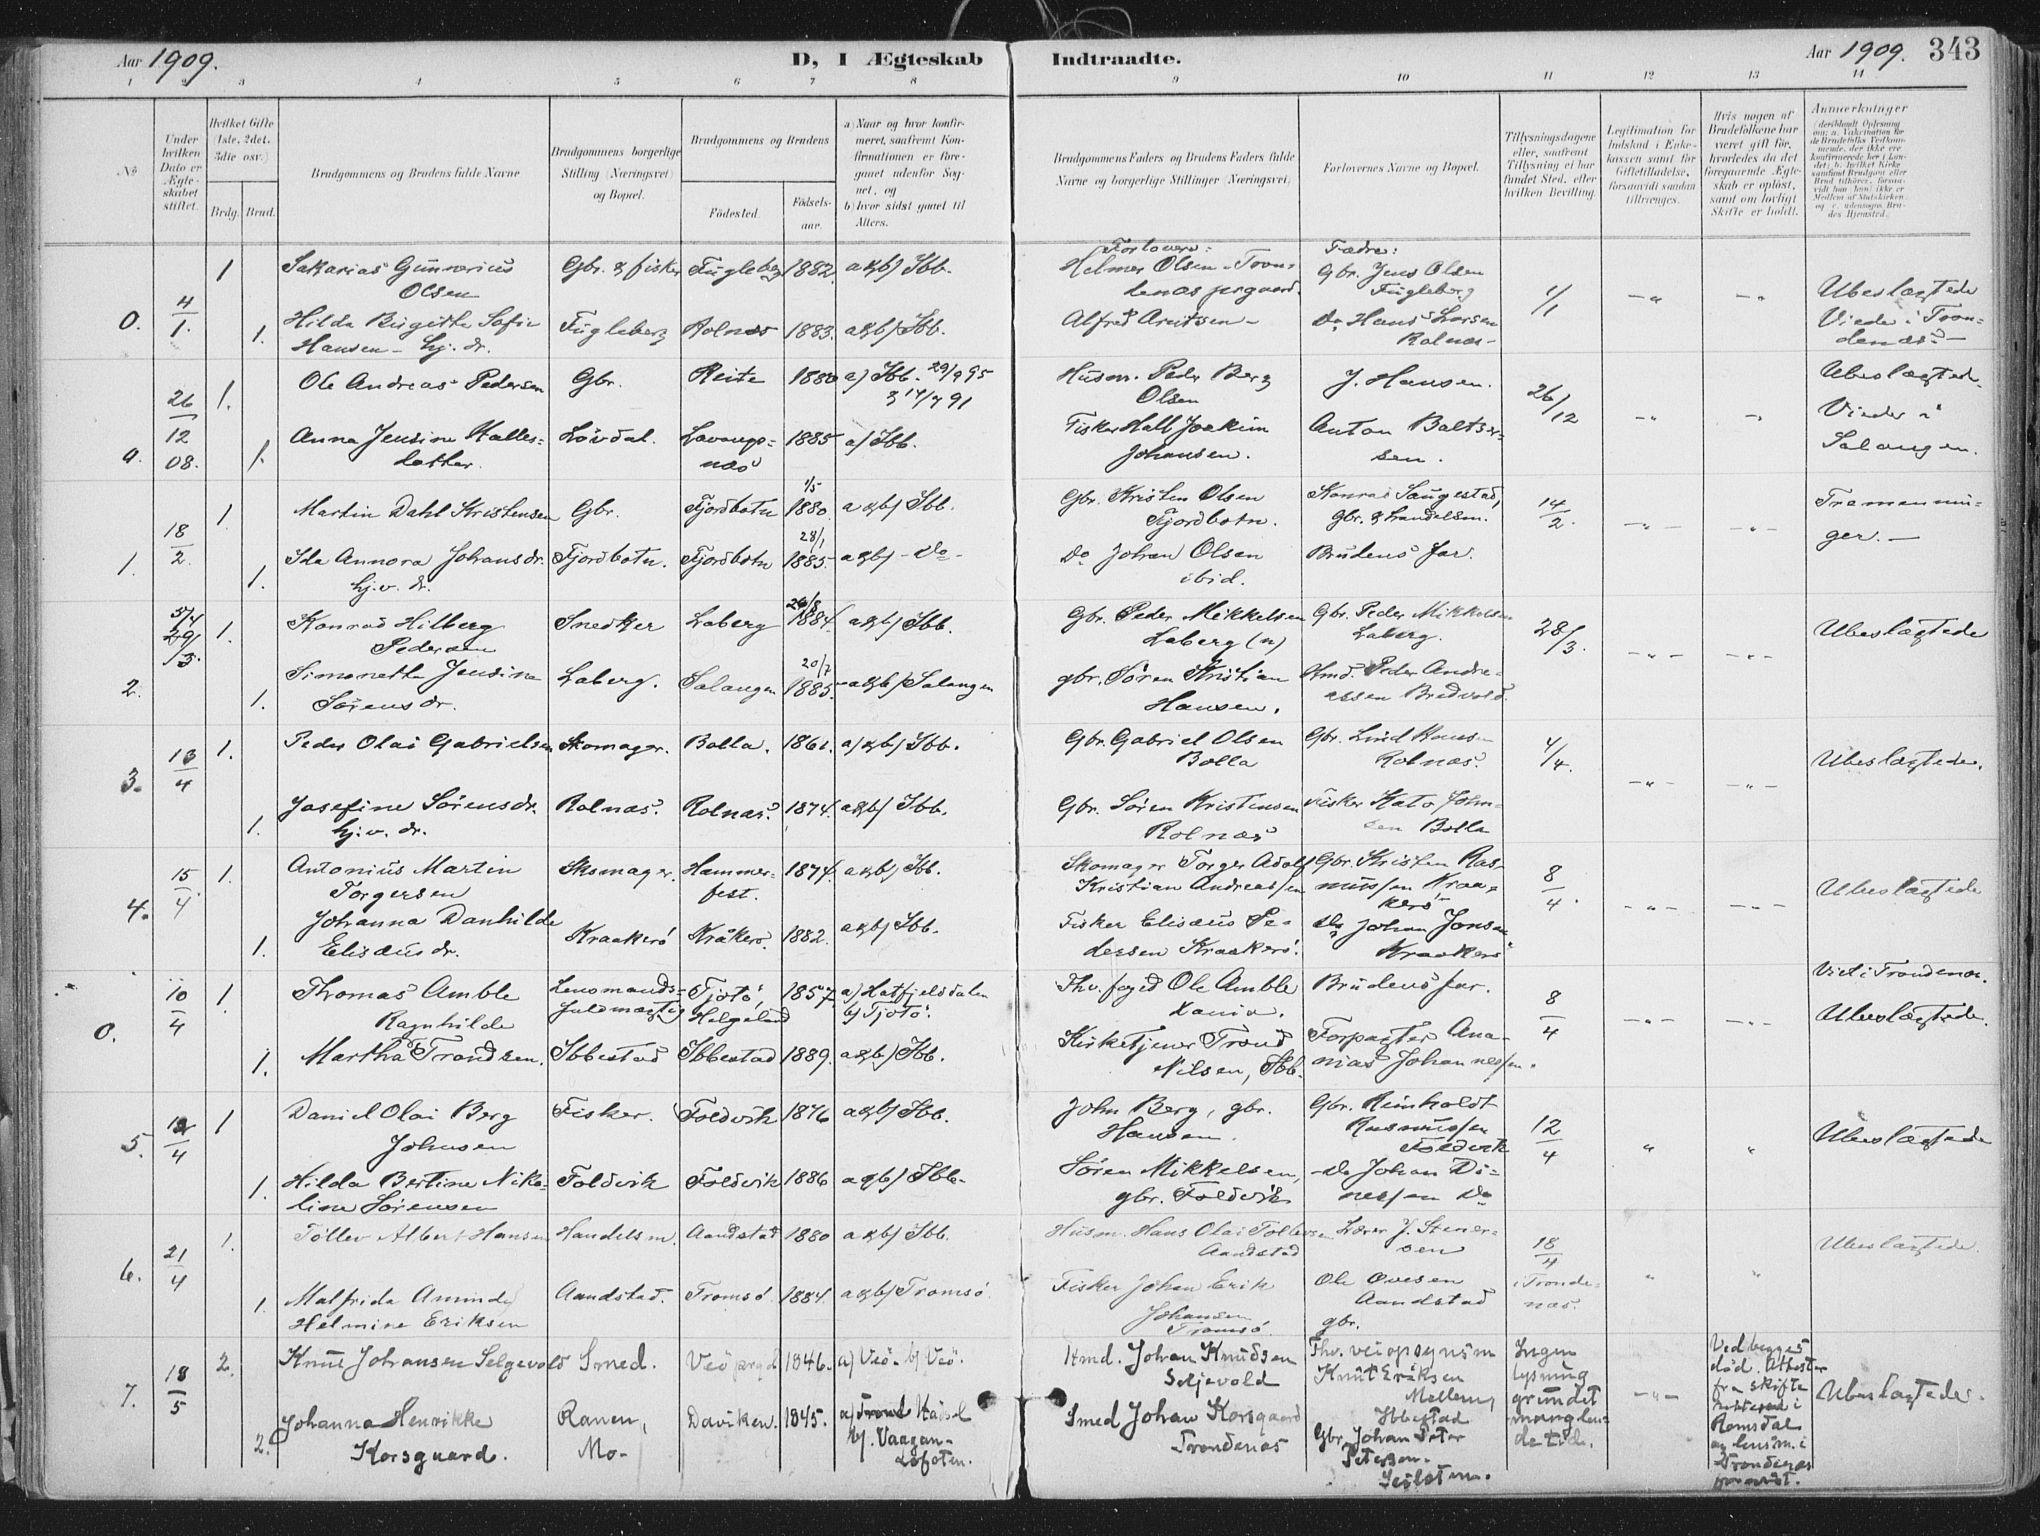 Aar 1909.
D, I Ægteskab
Indtraadte.
Aar 1909.
343
1 3 4 5 6 7 8 9 10 11 12 13 14
No
Under hvilken Dato er Ægteskabet stiftet.
Hvilket Gifte (1ste, 2det, 3die osv.)
Brdg. Brud.
Brudgommens og Brudens fulde Navne
Brudgommens borgerlige Stilling (Næringsvei) og Bopæl.
Brudgommens og Brudens
Födested.
Födsels-aar.
a) Naar og hvor konfirmeret, saafremt Konfirmationen er foregaaet udenfor Sognet, og
b) hvor sidst gaaet til Alters.
Brudgommens Faders og Brudens Faders fulde Navne og borgerlige Stillinger (Næringsvei)
Forlovernes Navne og Bopæl.
Tillysningsdagene eller, saafremt Tillysning ei har fundet Sted, efter hvilken Bevilling.
Legitimation for Indskud i Enkekassen samt for Giftetilladelse, forsaavidt saadan tiltrænges.
Hvis nogen af Brudefolkene har været gift før, hvorledes da det foregaaende Ægteskab er opløst, samt om lovligt Skifte er holdt.
Anmærkninger
0. 4/1. 1 Sakarias Gunnerius Olsen Gbr. & fisker Fugleberg 1882. a&b) Ibb. Forlovere: Helmer Olsen - Trondenas prgaard. Fædre: Gbr. Jens Olsen Fugleberg 1/1 Ubeslægtede
1. Hilda Birgitte Sofie Hansen - hj. dr. Fugleberg Rolnæs 1883. a&b) Ibb. Alfred Arntsen - Do Hans Larsen Rolnæs - Viede i Trondenæs. -
0. 26/12 08. 1. Ole Andreas Pedersen Gbr. Reite 1880 a) Ibb. 29/9 95 Husm. Peder Berg Olsen J. Hansen. 26/12 Ubeslægtede.
1. Anna Jensine Halles-datter. Løvdal. Lavangsnæs 1885 a) Ibb. Fisker Hall Joakim Johansen. Anton Baltsersen. Viede i Salangen.
1. 18/2. 1 Martin Dahl Kristensen Gbr. Fjordbotn 1/5 1880. a&b) Ibb. Gbr. Kristen Olsen Fjordbotn. Konrad Saugestad, Gbr. & handelsm. 14/2. Tremenninger. -
1. Ida Annora Johansdr. hj.v. dr. Fjordbotn. Fjordbotn 28/1 1885 a&b) - Do - Do Johan Olsen ibid. Brudens far.
2. 29/3. 1. Konrad Hilberg Pedersen Snedker Laberg 1884. a&b) Ibb. Gbr. Peder Mikkelsen Laberg (n) Gbr. Peder Mikkelsen Laberg. 28/3. Ubeslægtede
1. Simonette Jensine Sørensdr. Laberg. Salangen 20/7 1885. a&b) Salangen gbr. Søren Kristian Hansen. Peder Andreassen Bredvold.
3. 13/4 1. Peder Olai Gabrielsen Skomager. Bolla. 1861. a) &b) Ibb. Gbr. Gabriel Olsen Bolla Gbr. Lind Hansen Rolnæs. 4/4. Ubeslægtede.
1. Josefine Sørensdr. hj.v. dr. Rolnæs. Rolnæs. 1874. a&b) Ibb. Gbr. Søren Kristensen Rolnæs Fisker Kato Johnsen Bolla
4. 15/4. 1. Antonius Martin Torgersen Skomager. Hammerfest. 1874. a&b) Ibb. Skomager Torger Adolf Kristian Andreassen Gbr. Kristen Rasmussen Kraakerø 8/4. Ubeslægtede
1. Johanna Danhilde Elisæusdr. Kraakerö Kråkerö. 1882. a&b) Ibb. Fisker Elisæus Pedersen Kraakerö. Do Johan Jonsen Kraakerö
0. 10/4 1. Thomas Amble Lensmands-fuldmægtig Tjøtø, Helgeland 1857 a) Hatfjelddalen b) Tjøtø. Fhv. foged Ole Amble Xania. Brudens far. 8/4 Viet i Trondenæs. Ubeslægtede.
1. Martha Ragnhilde Trondsen. Ibbestad Ibbestad 1889. a&b) Ibb. Kirketjener Trond Nilsen, Ibb. Forpagter Ananias Johannessen.
5. 12/4 1 Daniel Olai Berg Johnsen Fisker. Foldvik 1876 a&b) Ibb. John Berg, gbr. Hansen. Gbr. Reinholdt Rasmussen Foldvik 12/4 Ubeslægtede
1. Hilda Bertine Nikoline Sörensen Foldvik Foldvik 1886 a&b) Ibb. Søren Mikkelsen, gbr. Foldvik - Do Johan Dinessen Do
6. 21/4 1. Tøllev Albert Hansen Handelsm. Aandstad 1880 a&b) Ibb. Husm. Hans Olai Tollevsen Aandstad Lærer J. Stenersen 18/4 Ubeslægtede.
1. Malfrida Aminda Helmine Eriksen Aandstad. Tromsø 1884. a&b) Tromsø. Fisker Johan Erik Johansen Tromsø. Ole Ovesen Aandstad gbr. i Trondenæs.
7. 18/5 2. Knut Johansen Selgevold Smed. Veö prgd 1846. a) Veö - b) Veö. Hmd. Johan Knudsen Seljevold Fhv. veiopsynsm Knut Eriksen Mellem, Ibbestad Ingen lysning grundet manglende tid. Ved begges död. Attester fra skifteretten i Romsdal og lensm. i Trondenæs forevist. Ubeslægtede.
2. Johanna Henrikke Korsgaard. Ranen, Mo - Daviken. 1845. b). Vaagan - Lofoten. Smed Johan Korsgaard Trondenas Gbr. Johan Peter Petersen